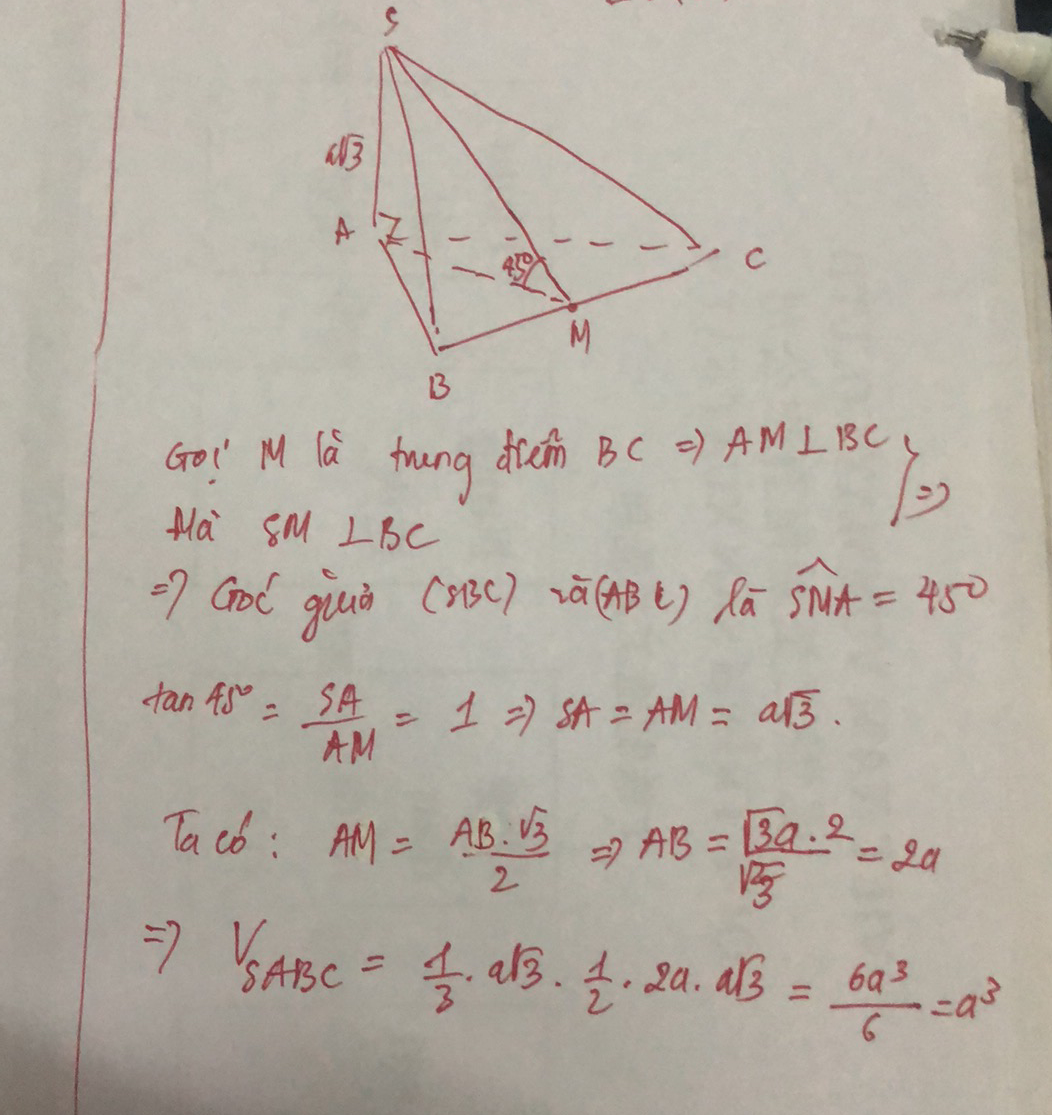 S
a√3
A
45°
C
M
B
Gọi M là trung điểm BC => AM ⊥ BC
Mà SM ⊥ BC
=>
=> Góc giữa (SBC) và (ABC) là SMA = 45°
tan 45° = SA/AM = 1 => SA = AM = a√3.
Ta có: AM = AB.√3/2 => AB = √3a.2/√3 = 2a
=> VSABC = 1/3 . a√3 . 1/2 . 2a . a√3 = 6a³/6 = a³